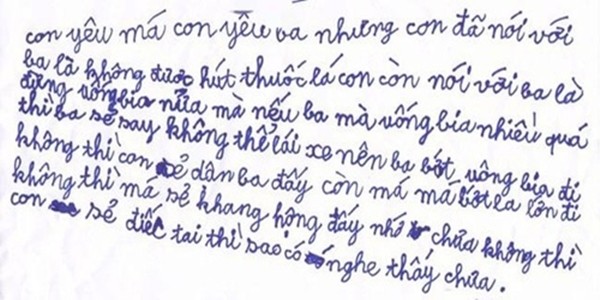 con yêu má con yêu ba nhưng con đã nói với
ba là không được hút thuốc lá con còn nói với ba là
đừng uống bia nữa mà nếu ba mà uống bia nhiều quá
thì ba sẽ say không thể lái xe nên ba bớt uống bia đi
không thì con sẽ dân ba đấy còn má má bớt la lớn đi
không thì má sẽ khang họng đấy nhớ chưa không thì
con sẻ điếc tai thì sao có nghe thấy chưa.